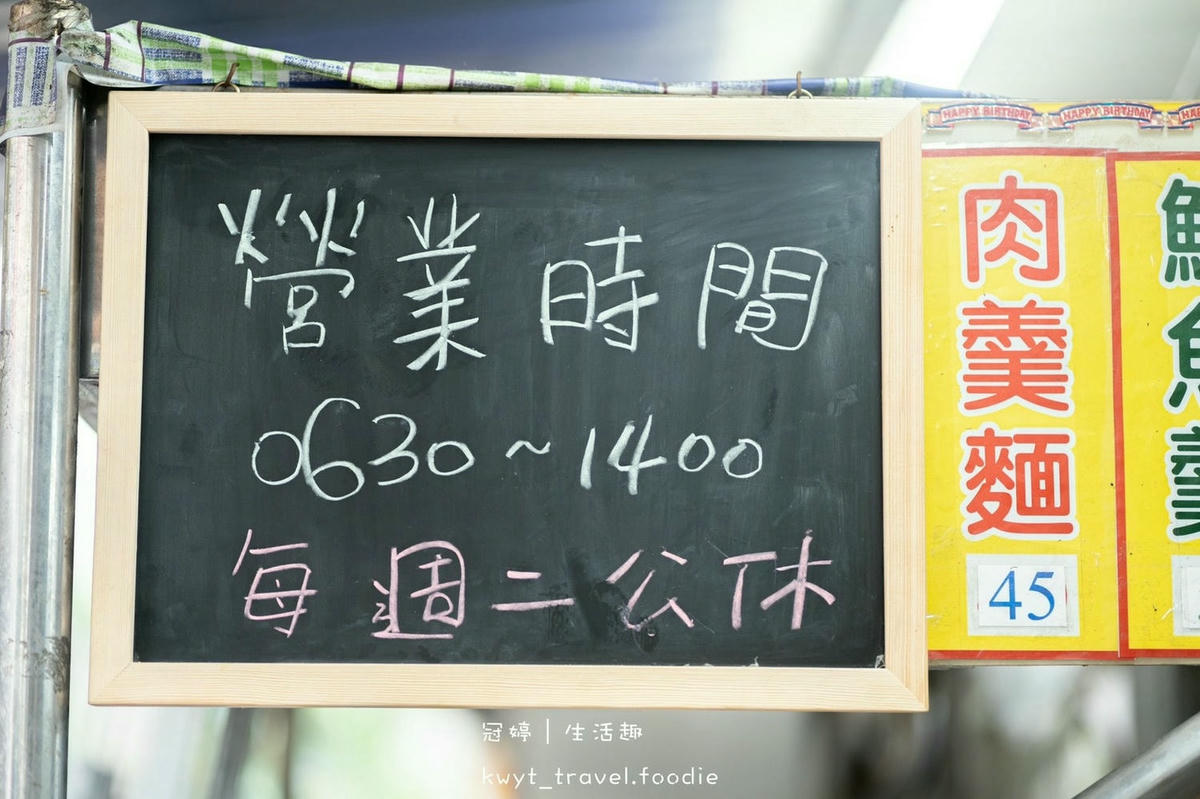 營業時間
0630~1400
每週二公休
HAPPY BIRTHDAY
HAPPY BIRTHDAY
肉羹麵
45
冠婷｜生活趣
kwyt_travel.foodie